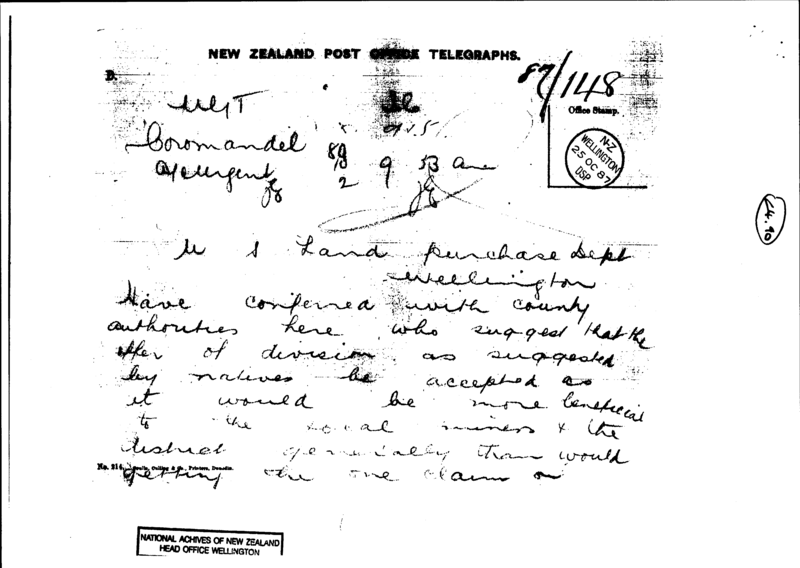 NEW ZEALAND POST OFFICE TELEGRAPHS.
B.
87/148
Office Stamp.
Coromandel
Urgent
89
2 9 53 am
N-Z
WELLINGTON
25 OC 87
DSP
U S Land purchase Dept
Wellington
Have conferred with county
authorities here who suggest that the
offer of division as suggested
by natives be accepted as
it would be more beneficial
to the local miners & the
district generally than would
getting the one claim on
No. 214.
NATIONAL ACHIVES OF NEW ZEALAND
HEAD OFFICE WELLINGTON